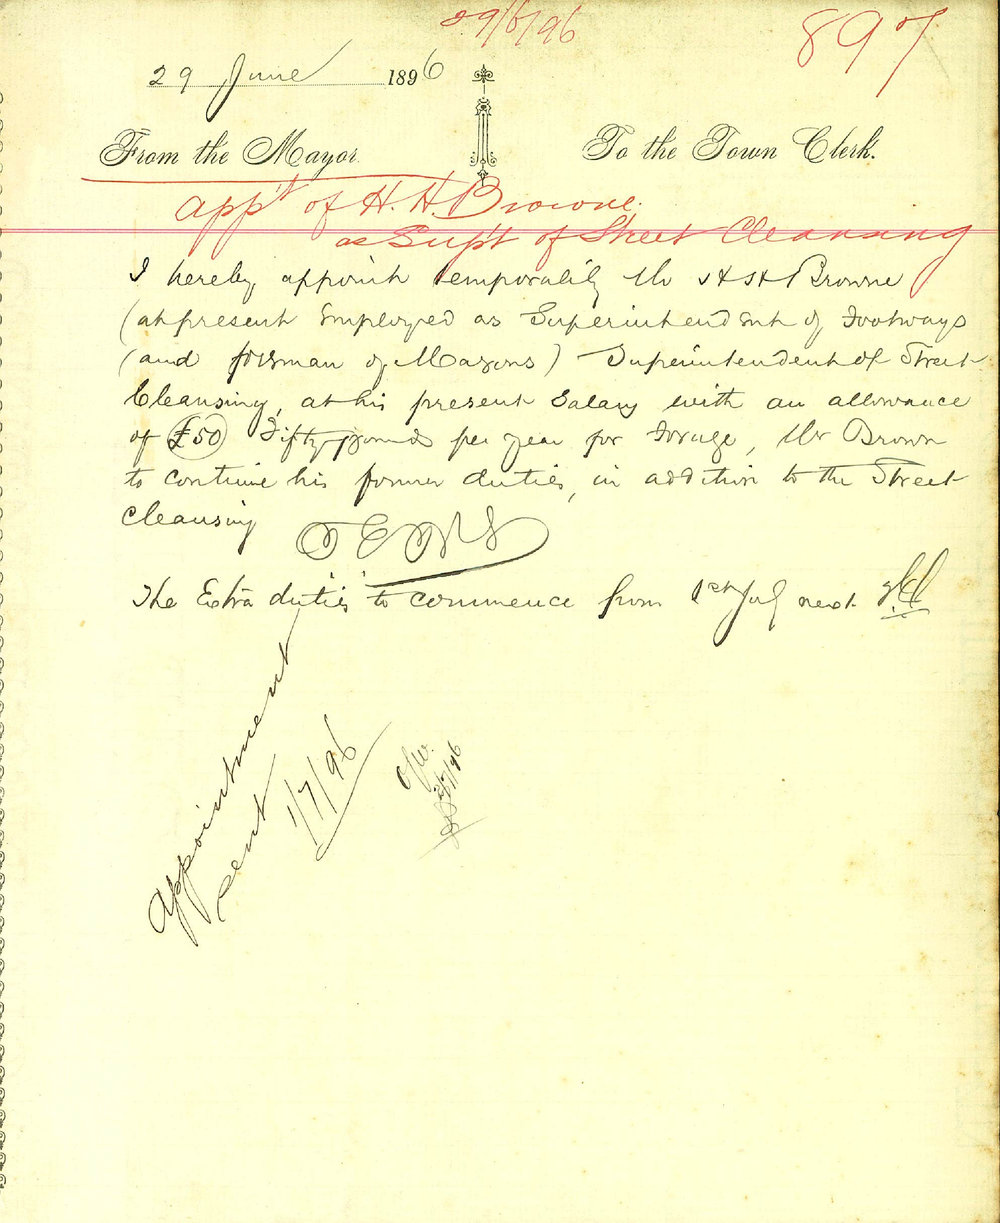 29/6/96
897
29 June 1896
From the Mayor
To the Town Clerk.
App't of H. H. Browne.
as Sup't of Street Cleansing
I hereby appoint temporalily Mr H H Browne
(at present Employed as Superintendent of Footways
(and foreman of Masons) Superintendent of Street
Cleansing, at his present Salary with an allowance
of £50 Fifty pounds per year for forage, Mr Brown
to continue his former duties, in addition to the Street
Cleansing
The Extra duties to commence from 1st July next
Appointment
sent 1/7/96
2/7/96